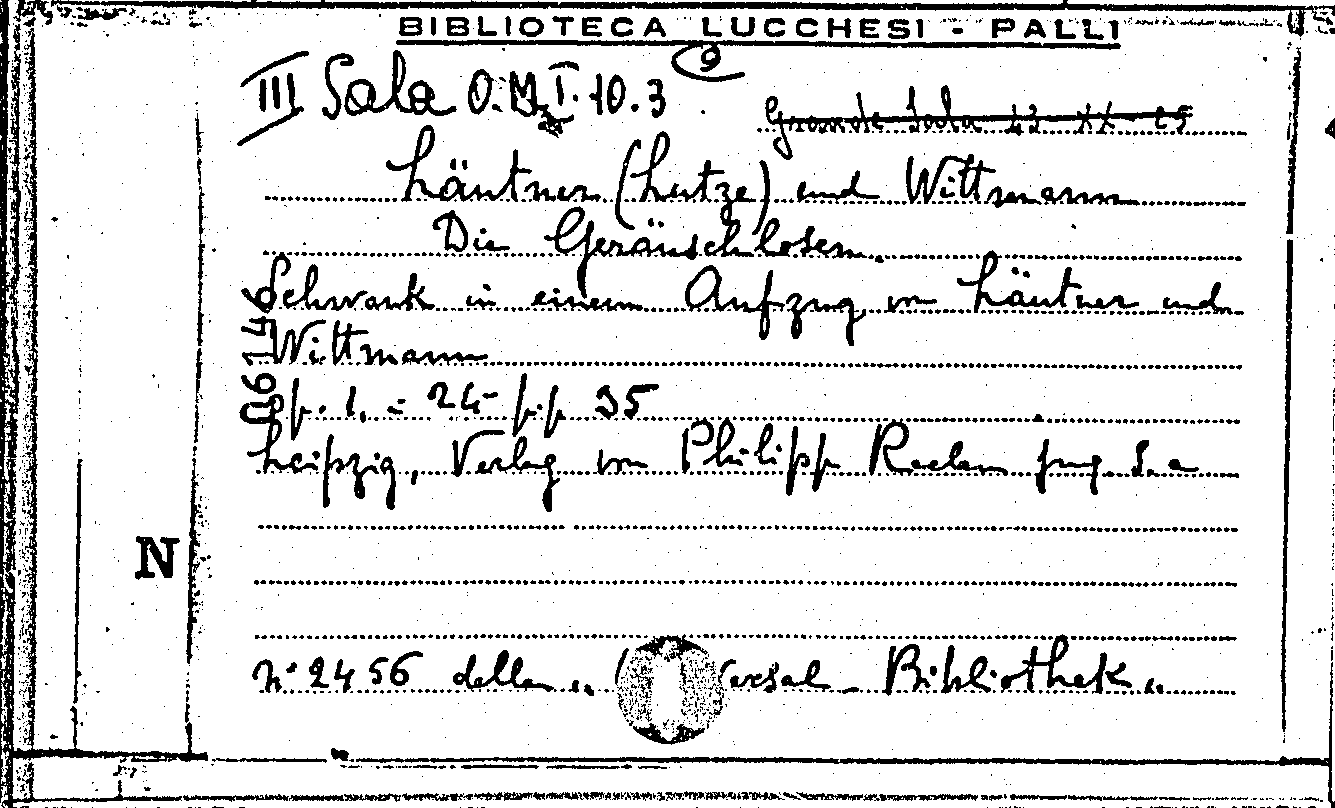 BIBLIOTECA LUCCHESI - PALLI
III Sala O.M.I.10.3 (9
Grande Sala 23 XX 25
Läutner (Lutze) und Wittmann
Die Geräuschlosen.
Schwank in einem Aufzug von Läutner und
Wittmann
06146
p. 1. = 24- p.p 35
Leipzig, Verlag von Philipp Reclam jung. S.a
N
n° 2456 della „ ersal - Bibliothek „